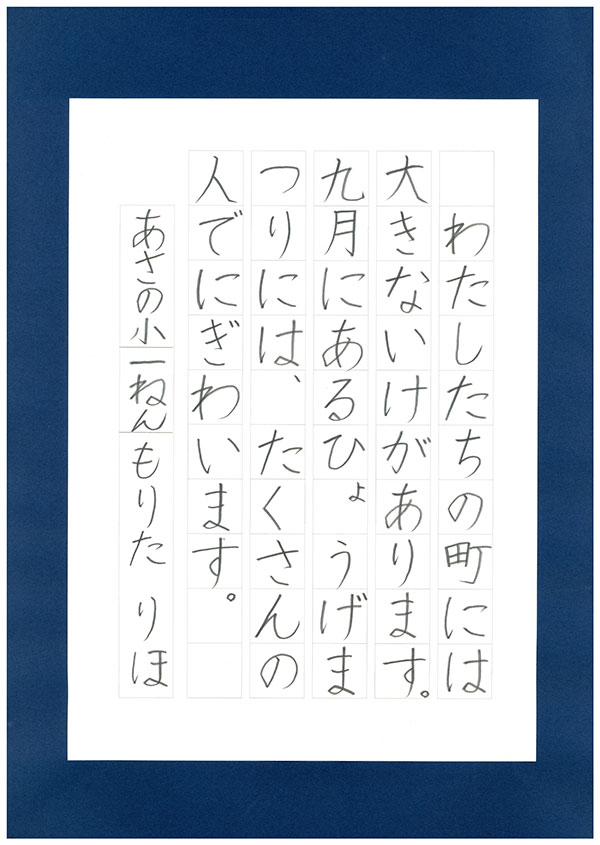 わたしたちの町には
大きないけがあります。
九月にあるひょうげま
つりには、たくさんの
人でにぎわいます。
あさの小一ねんもりた りほ